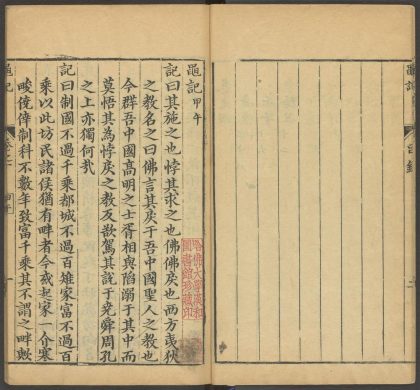 黽記
目錄
黽記 甲午
記曰其施之也悖其求之也佛佛戾也西方夷狄
之教名之曰佛言其戾于吾中國聖人之教也
今群吾中國高明之士胥相與陷溺于其中而
莫悟其為悖戾之教反欲駕其說于堯舜周孔
之上亦獨何哉
記曰制國不過千乘都城不過百雉家富不過百
乘以此坊民諸侯猶有畔者今或起家一介寒
畯僥倖制科不數年致富千乘其不謂之畔歟
黽記
卷之一
甲午
一
哈佛大學漢和
圖書館珍藏印